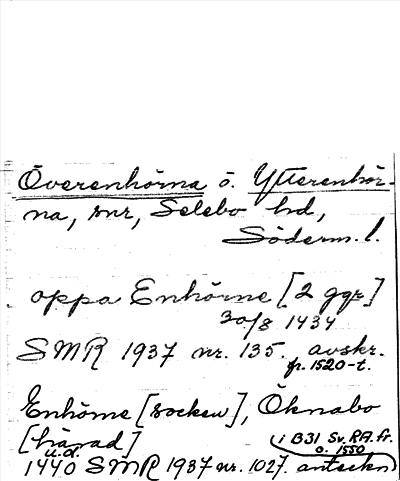 Överenhörna o. Ytterenhör-
na, snr, Selebo hd,
Söderm. l.
oppa Enhörne [2 ggr]
30/8 1434
SMR 1937 nr. 135. avskr.
fr. 1520-t.
Enhörne [socken], Öknabo
[härad]
(i B31 Sv. RA. fr.
u.d. o. 1550
1440 SMR 1937 nr. 1027. anteckn)